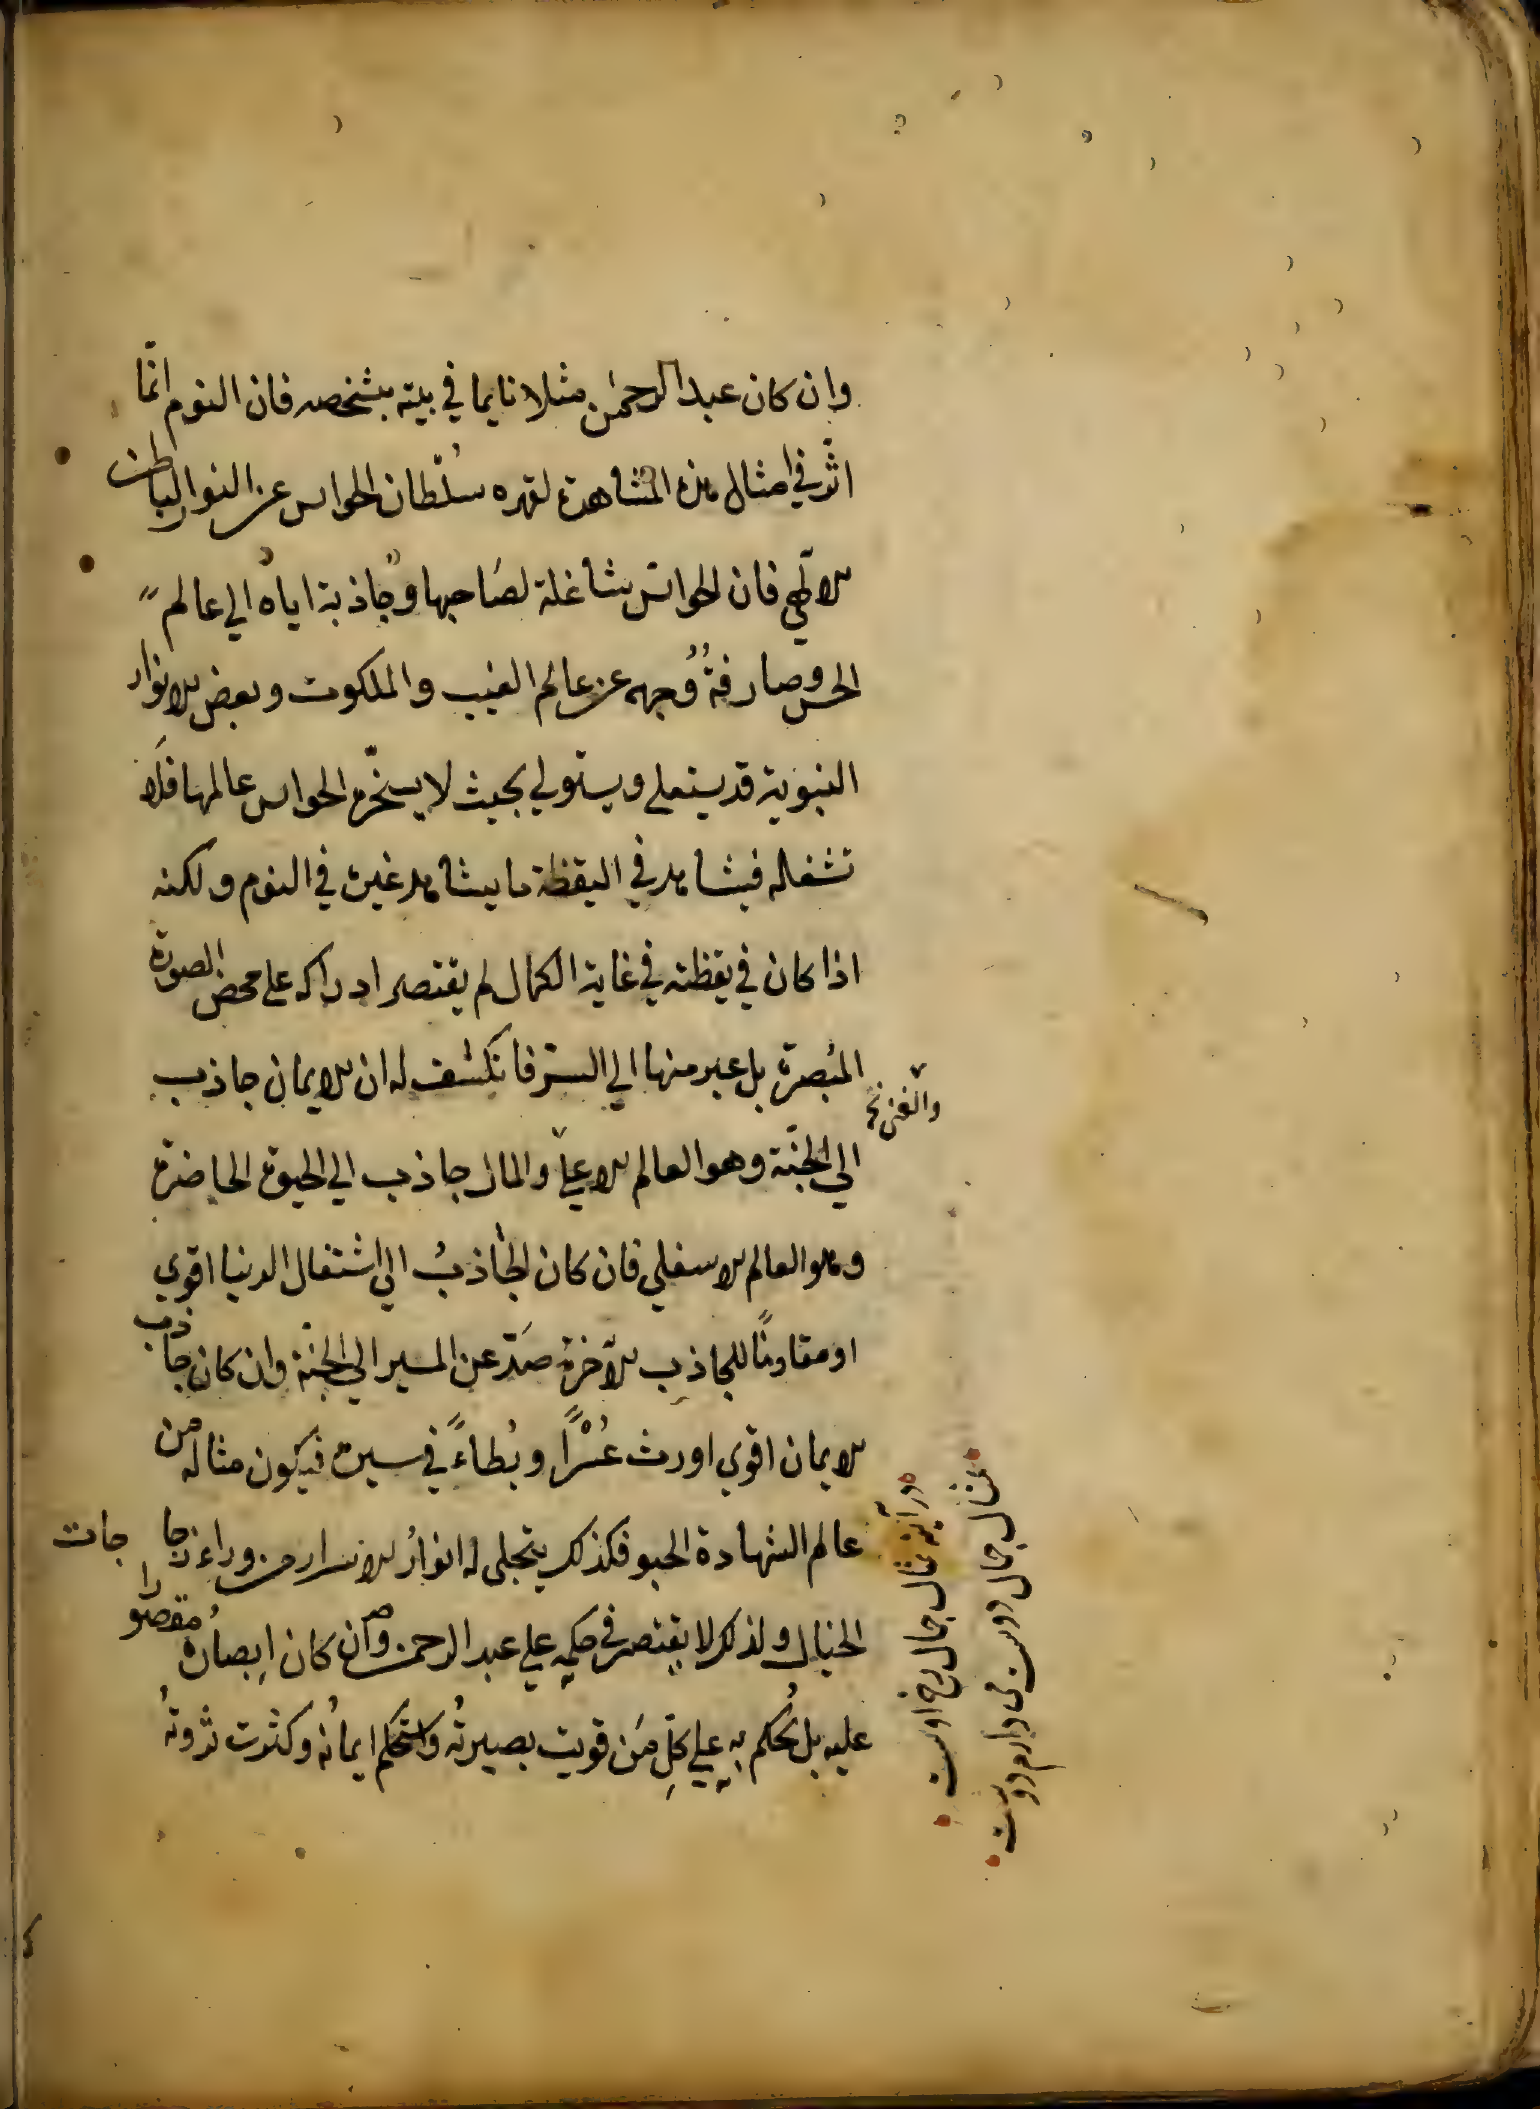 وان كان عبد الرحمن مثلا نايما في بيته بشخصه فان النوم انّما
اثّر في امثال هذه المشاهدة لقهره سُلطان الحواس عن النور الباطن
الآلهي فان الحواسّ شاغلة لصَاحبها وجَاذبة اياه الي عالم
الحس وصارفةٌ وُجهه عن عالم الغيب والملكوت وبعض الانوار
النبوية قد يستعلي ويستولي بحيث لا يستجرّه الحواس عالمها فلا
تشغله فيشاهد في اليقظة ما يشاهد غيره في النوم ولكنه
اذا كان في يقظته في غاية الكمال لم يقتصر ادراكه علي محض الصورة
المُبصرة بل عبر منها الي السرّ فانكشف له ان الايمان جاذب
والغنى نخ
الي الجنّة وهو العالم الاعلي والمال جاذب الي الحيوة الحاضرة
وهو العالم الاسفلي فان كان الجَاذبُ الي اشتغال الدنيا اقوي
او مقاومًا للجاذب الآخرة صَدّ عن المسير الي الجنّة وان كان جاذب
الايمان اقوي اورث عُسْرًا وبُطاءً في سيره فيكون مثاله من
عالم الشهادة الحبو فكذلك يتجلي له انوارُ الاسرار من وراء زجا جات
الخيال ولذلك لا يقتصر في حكمهِ علي عبد الرحمن وان كان ابصارُهُ مقصورا
عليه بل يُحكم بهِ علي كلِّ مَن قويت بصيرتُه واستحكم ايمانُه وكثرت ثروتهُ
مثال جمال دوست می دارم دوست
در آینه مثال جمال رخ اوست